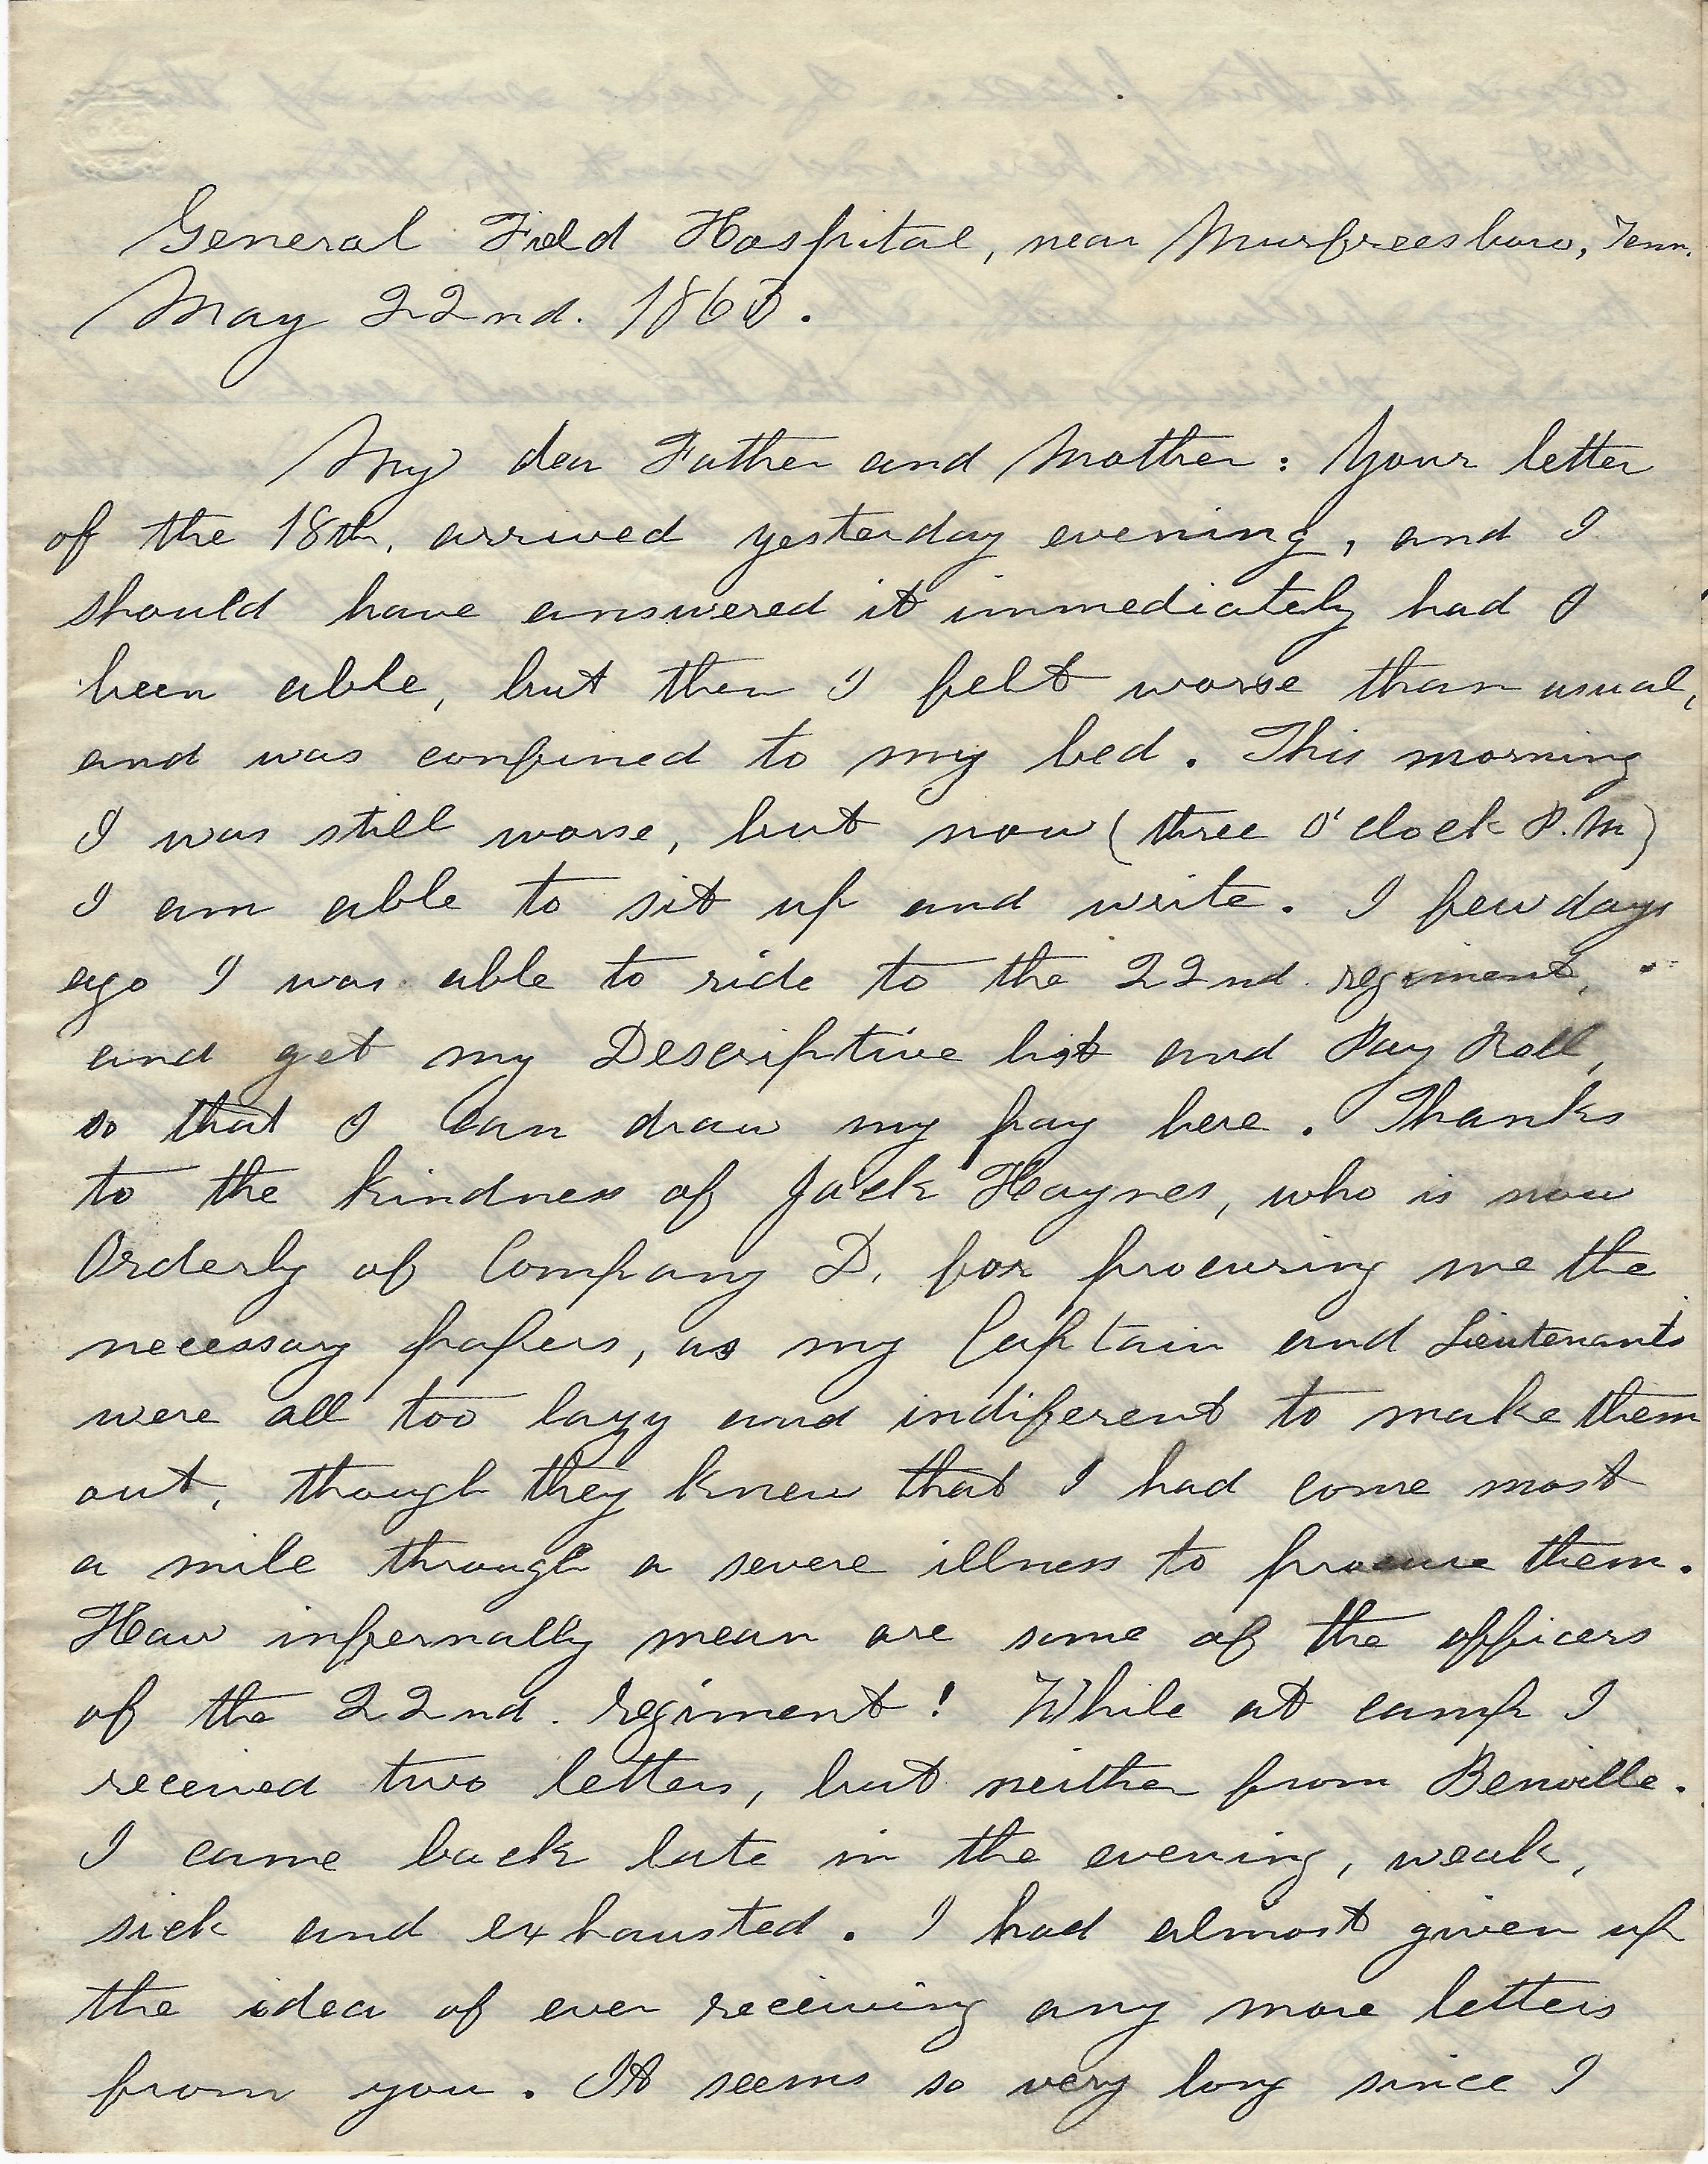 General Field Hospital, near Murfreesboro, Tenn.
May 22nd. 1863.
My dear Father and Mother: Your letter
of the 18th, arrived yesterday evening, and I
should have answered it immediately had I
been able, but then I felt worse than usual,
and was confined to my bed. This morning
I was still worse, but now (three O'clock P.M)
I am able to sit up and write. I few days
ago I was able to ride to the 22nd. regiment,
and get my Descriptive list and Pay Roll,
so that I can draw my pay here. Thanks
to the kindness of Jack Haynes, who is now
Orderly of Company D, for procuring me the
necessary papers, as my Captain and Lieutenants
were all too lazy and indiferent to make them
out, though they knew that I had come most
a mile through a severe illness to procure them.
How infernally mean are some of the officers
of the 22nd. regiment! While at camp I
received two letters, but neither from Benville.
I came back late in the evening, weak,
sick and exhausted. I had almost given up
the idea of ever receiving any more letters
from you. It seems so very long since I